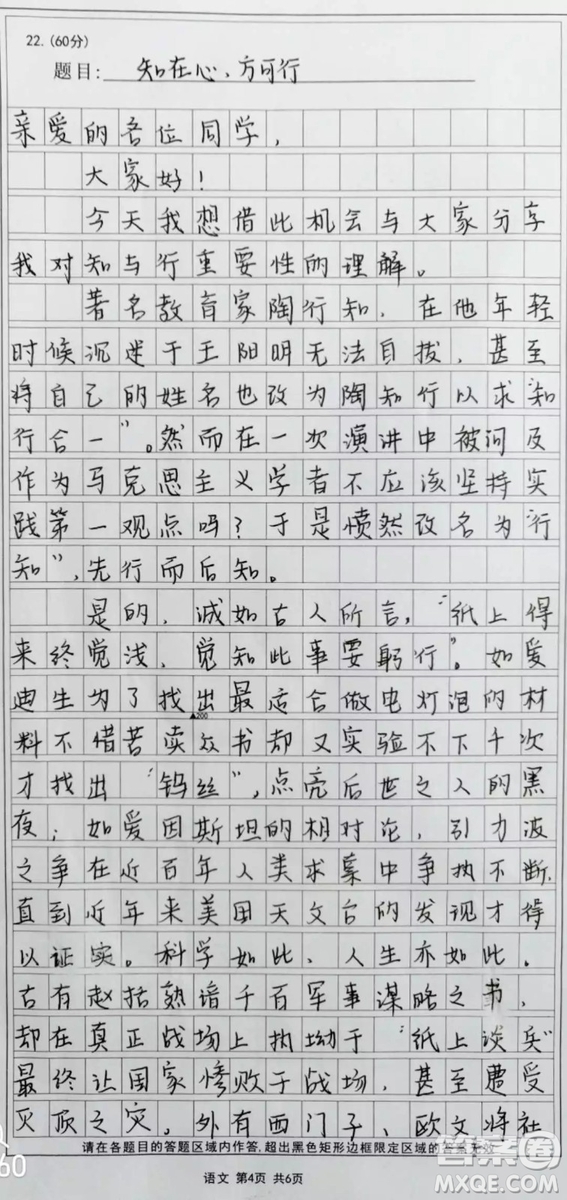 22. (60分)
题目: 知在心，方可行
亲爱的各位同学，
大家好！
今天我想借此机会与大家分享
我对知与行重要性的理解。
著名教育家陶行知，在他年轻
时候沉迷于王阳明无法自拔，甚至
将自己的姓名也改为陶知行以求“知
行合一”。然而在一次演讲中被问及
作为马克思主义学者不应该坚持实
践第一观点吗？于是愤然改名为“行
知”，先行而后知。
是的，诚如古人所言，“纸上得
来终觉浅，觉知此事要躬行”。如爱
迪生为了找出最适合做电灯泡的材
▲200
料不惜苦读众书却又实验不下千次
才找出“钨丝”，点亮后世之人的黑
夜；如爱因斯坦的相对论，引力波
之争在近百年人类求募中争执不断，
直到近年来美国天文台的发现才得
以证实。科学如此，人生亦如此。
古有赵括熟谙千百军事谋略之书，
却在真正战场上执拗于“纸上谈兵”
最终让国家惨败于战场，甚至遭受
灭顶之灾，外有西门子、欧文将社
请在各题目的答题区域内作答,超出黑色矩形边框限定区域的答案无效
语文 第4页 共6页
60
答案圈